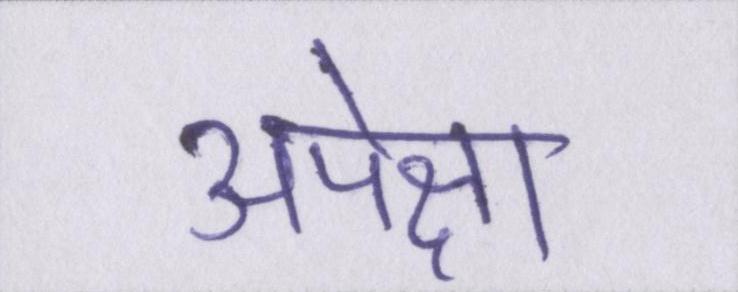 अपेक्षा